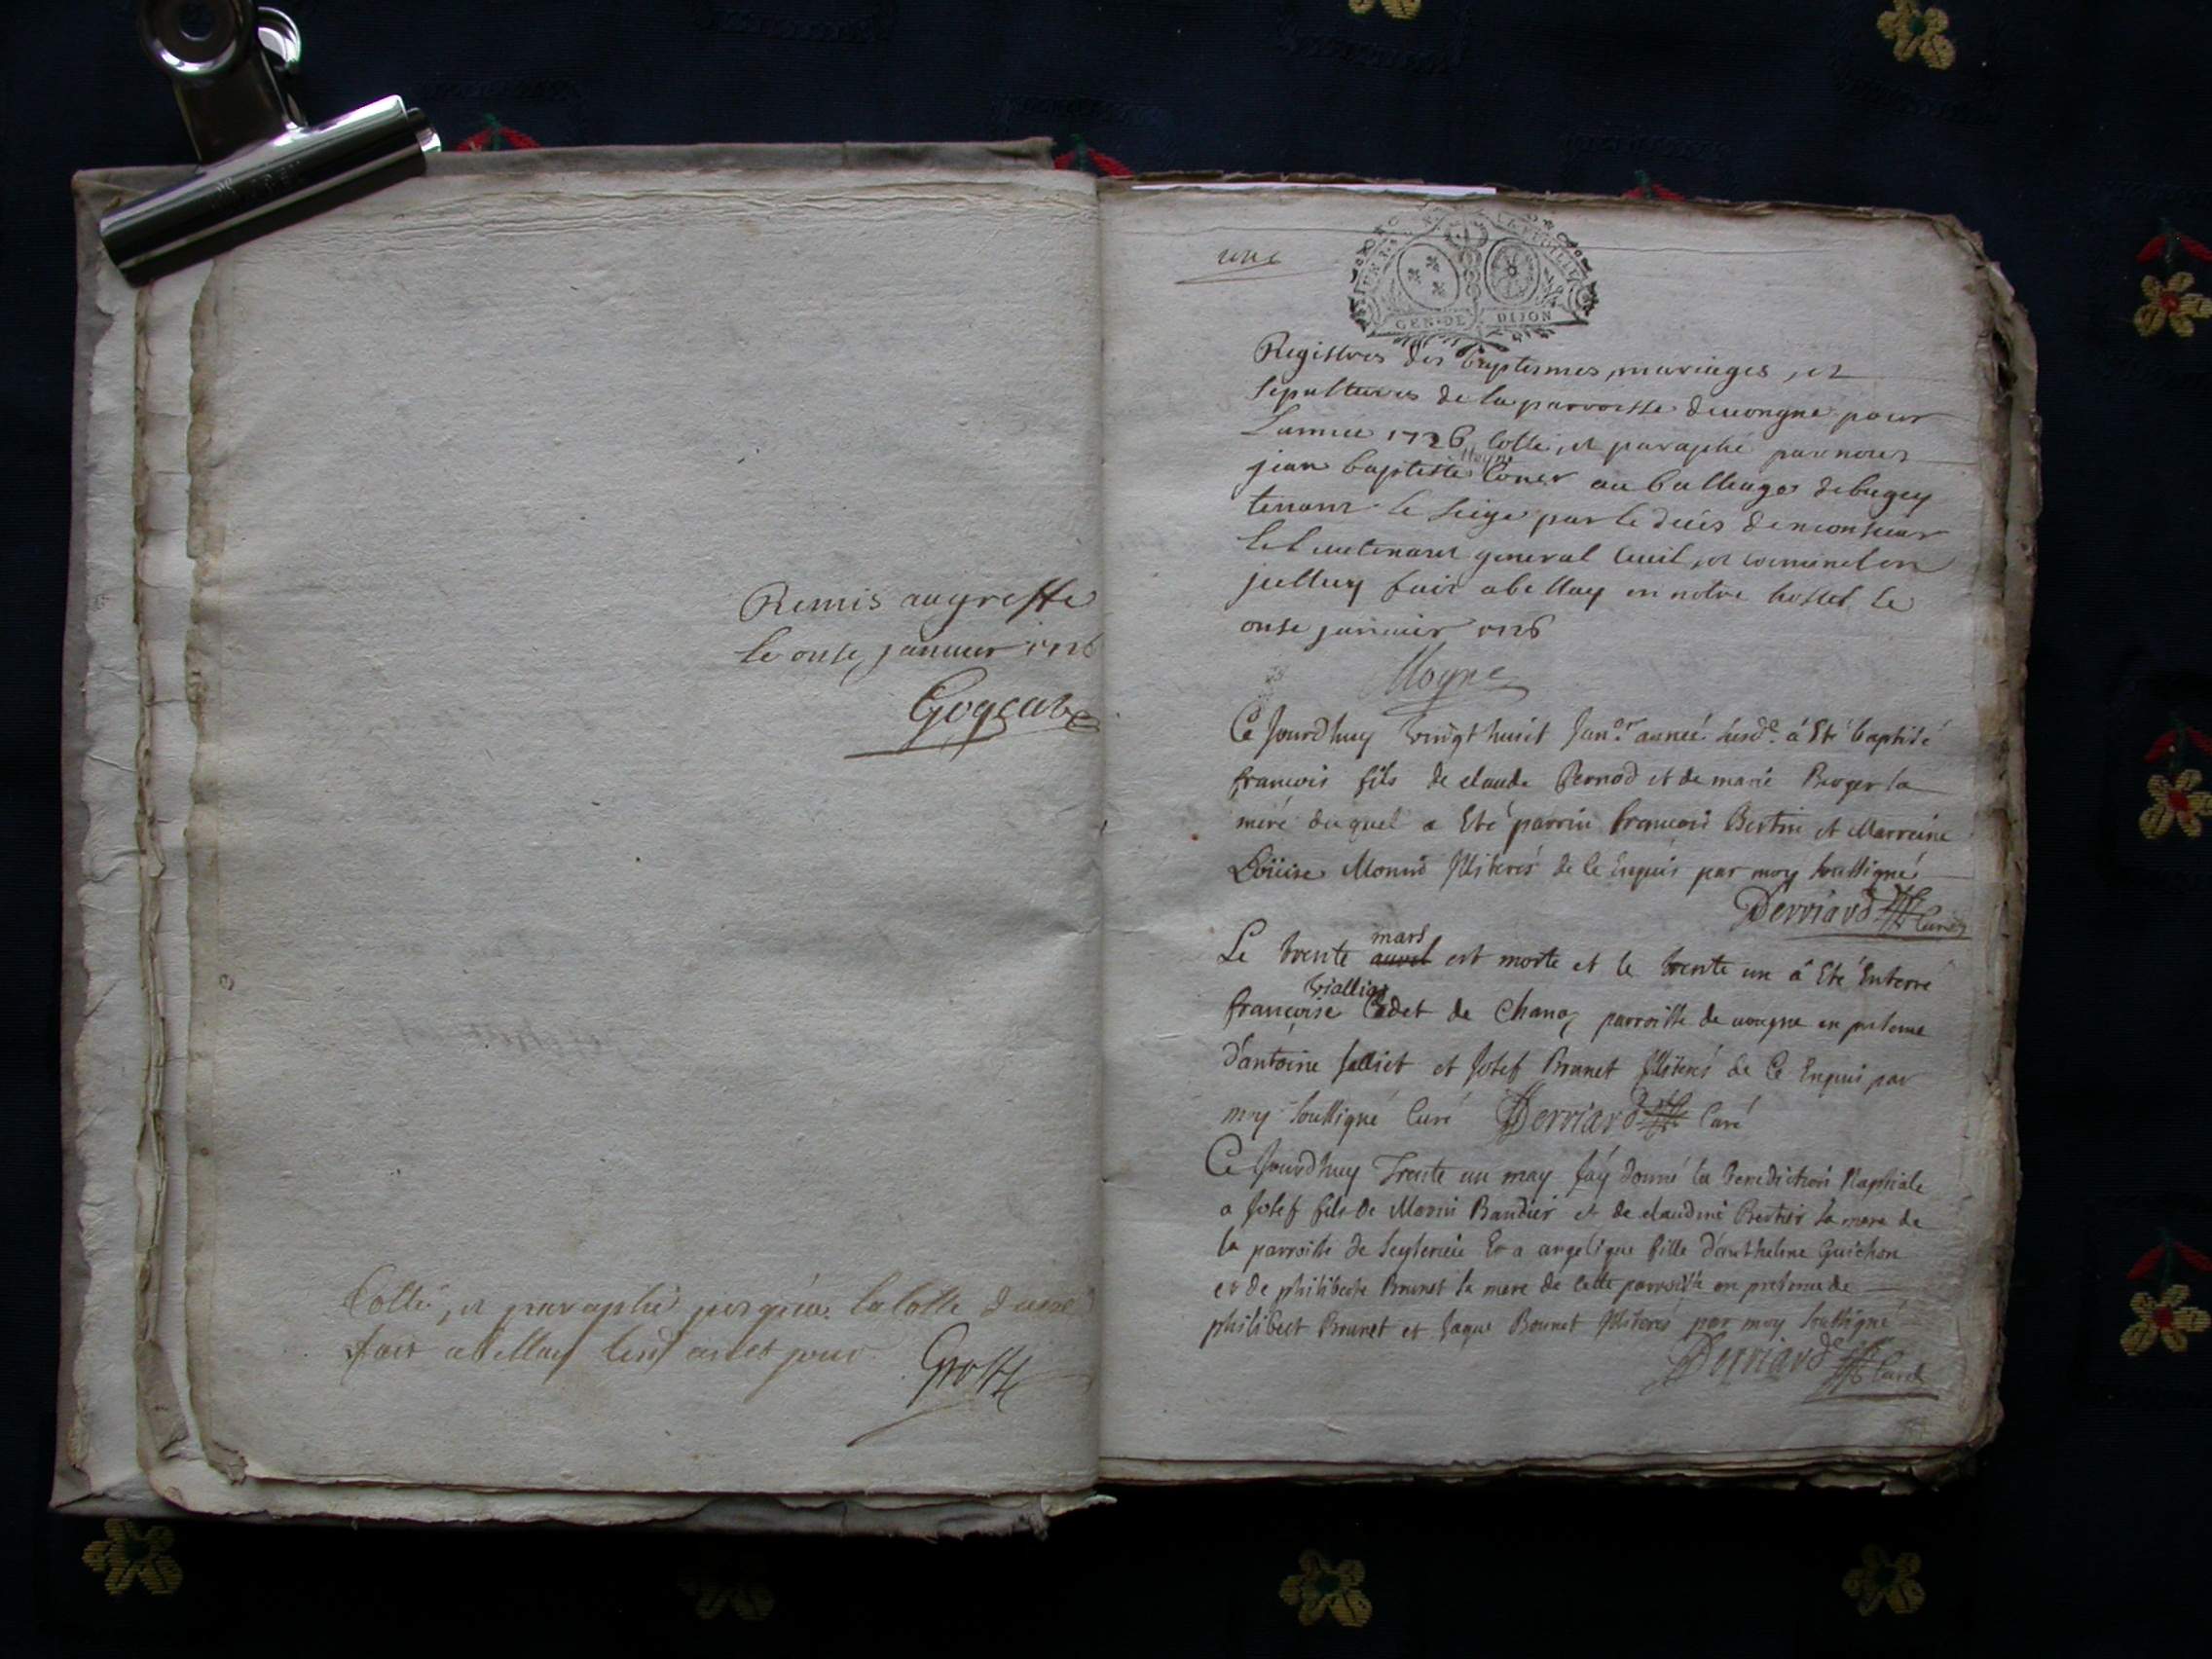 Remis au greffe
le onse januier 1726
Cotté, et paraphé jusques la cotte
fait a bellay
une
GEN·DE DIJON
Registres des baptesmes, mariages, et
sepultures de la parroisse deuongne pour
L'année 1726 cotté, et paraphé par nous
jean baptiste Moyne Coner au balliage debugey
tenant le siege par le décés de monsieur
le lieutenant general ciuil, et criminel en
fait a bellay en notre hostel le
onse januier 1726
Moyne
Ce Jourdhuy vingt huit Janer année susde á Eté baptisé
francois fils de claude Pernod et de marie Roger sa
mére duquel a Eté parrin francois Bertin et Marreine
Loüise Monnd Illiterés de ce Enquis par moy soussigné
Derriard Curé
Le trente mars auvril est morte et le trente un á Eté Enterré
françoise Cadet de Chanaz parroisse de uongne en presence
d'antoine Julliet et Josef Brunet Illiterés de Ce Enquis par
moy soussigné Curé Derriard Curé
Ce Jourdhuy Trente un may J'áy donné la Benediction Nuptiale
a Josef fils de Marin Baudier et de claudine Bertier sa mere de
la parroisse de Et a angelique fille d'anthelme Guichon
et de philiberte Brunet sa mere de cette parroisse en presence de
philibert Brunet et Jaque Bonnet Illiterés par moy soussigné
Derriard Curé